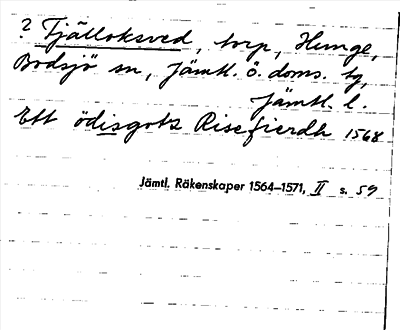 ? Tjälloksved, torp, Hunge,
Bodsjö sn, Jämtl. ö. doms. tg,
Jämtl. l.
Ett ödisgotz Risefierdh 1568
Jämtl. Räkenskaper 1564–1571, II s. 59